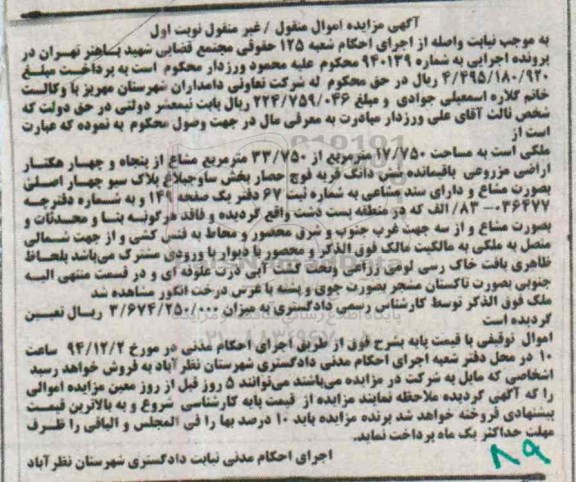 آگهی مزایده اموال منقول / غیر منقول نوبت اول
به موجب نیابت واصله از اجرای احکام شعبه ۱۲۵ حقوقی مجتمع قضایی شهید باهنر تهران در
پرونده اجرایی به شماره ۹۴۰۱۳۹ محکوم علیه محمود ورزدار محکوم است به پرداخت مبلغ
۴/۴۹۵/۱۸۰/۹۲۰ ریال در حق محکوم له شرکت تعاونی دامداران شهرستان مهریز با وکالت
خانم گلاره اسمعیلی جوادی و مبلغ ۲۲۴/۷۵۹/۰۴۶ ریال بابت نیمعشر دولتی در حق دولت که
شخص ثالث آقای علی ورزدار مبادرت به معرفی مال در جهت وصول محکوم به نموده که عبارت
است از
ملکی است به مساحت ۱۷/۷۵۰ مترمربع از ۳۳/۷۵۰ مترمربع مشاع از پنجاه و چهار هکتار
اراضی مزروعی باقیمانده شش دانگ قریه قوچ حصار بخش ساوجبلاغ پلاک سیو چهار اصلی
بصورت مشاع و دارای سند مشاعی به شماره ثبت ۶۷ دفتر یک صفحه ۱۴۹ و به شماره دفترچه
۰۳۶۴۷۷–۸۳/ الف که در منطقه پست دشت واقع گردیده و فاقد هرگونه بنا و محدثات و
بصورت مشاع و از سه جهت غرب جنوب و شرق محصور و محاط به فنس کشی و از جهت شمالی
متصل به ملکی به مالکیت مالک فوق الذکر و محصور با دیوار با ورودی مشترک می‌باشد بلحاظ
ظاهری بافت خاک رسی لومی زراعی وتحت کشت آبی ذرت علوفه ای و در قسمت منتهی الیه
جنوبی بصورت تاکستان مشجر بصورت جوی و پشته با غرس درخت انگور مشاهده شد
ملک فوق الذکر توسط کارشناس رسمی دادگستری به میزان ۳/۶۷۴/۲۵۰/۰۰۰ ریال تعیین
گردیده است
اموال توقیفی با قیمت پایه بشرح فوق از طریق اجرای احکام مدنی در مورخ ۹۴/۱۲/۲ ساعت
۱۰ در محل دفتر شعبه اجرای احکام مدنی دادگستری شهرستان نظرآباد به فروش خواهد رسید
اشخاصی که مایل به شرکت در مزایده می‌باشند می‌توانند ۵ روز قبل از روز معین مزایده اموالی
را که آگهی گردیده ملاحظه نمایند مزایده از قیمت پایه کارشناسی شروع و به بالاترین قیمت
پیشنهادی فروخته خواهد شد برنده مزایده باید ۱۰ درصد بها را فی المجلس و الباقی را ظرف
مهلت حداکثر یک ماه پرداخت نماید.
اجرای احکام مدنی نیابت دادگستری شهرستان نظرآباد
۸۹